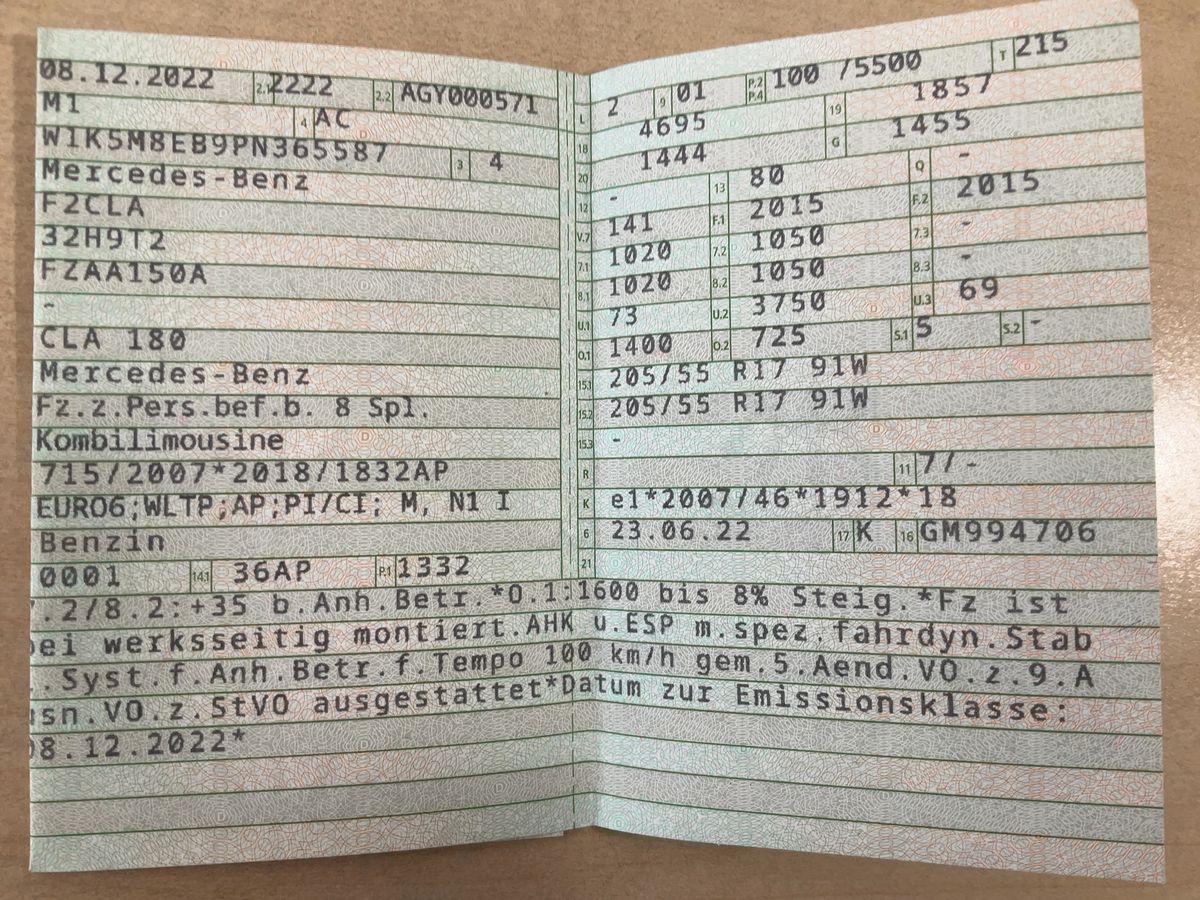 08.12.2022 2.1 2222 2.2 AGY000571
M1 4 AC
W1K5M8EB9PN365587 3 4
Mercedes-Benz
F2CLA
32H9T2
FZAA150A
-
CLA 180
Mercedes-Benz
Fz.z.Pers.bef.b. 8 Spl.
Kombilimousine
715/2007*2018/1832AP
EURO6;WLTP;AP;PI/CI; M, N1 I
Benzin
0001 14.1 36AP P.1 1332
L 2 9 01 P.2 P.4 100 /5500 T 215
18 4695 19 1857
20 1444 G 1455
12 - 13 80 Q -
V.7 141 F.1 2015 F.2 2015
7.1 1020 7.2 1050 7.3 -
8.1 1020 8.2 1050 8.3 -
U.1 73 U.2 3750 U.3 69
O.1 1400 O.2 725 S.1 5 S.2 -
15.1 205/55 R17 91W
15.2 205/55 R17 91W
15.3 -
R 11 7/-
K e1*2007/46*1912*18
6 23.06.22 17 K 16 GM994706
21
7.2/8.2:+35 b.Anh.Betr.*O.1:1600 bis 8% Steig.*Fz ist
bei werksseitig montiert.AHK u.ESP m.spez.fahrdyn.Stab
.Syst.f.Anh.Betr.f.Tempo 100 km/h gem.5.Aend.VO.z.9.A
usn.VO.z.StVO ausgestattet*Datum zur Emissionsklasse:
08.12.2022*